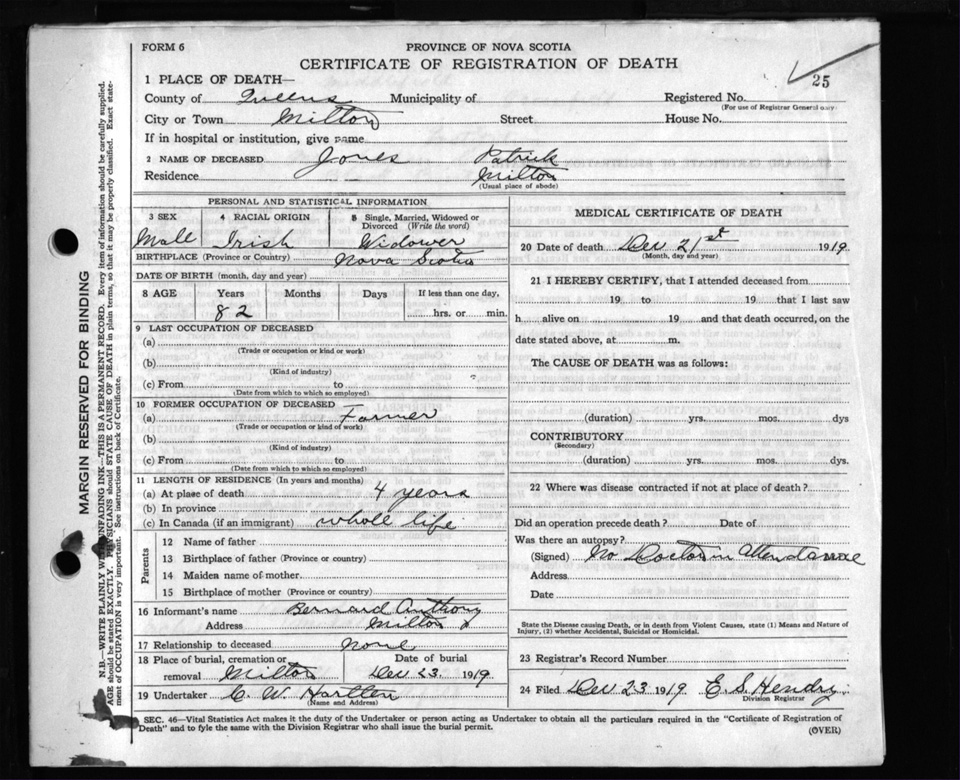 FORM 6
PROVINCE OF NOVA SCOTIA
CERTIFICATE OF REGISTRATION OF DEATH
25
1 PLACE OF DEATH—
County of Queens Municipality of Registered No.
(For use of Registrar General only)
City or Town Milton Street House No.
If in hospital or institution, give name
2 NAME OF DECEASED Jones Patrick
Residence Milton
(Usual place of abode)
PERSONAL AND STATISTICAL INFORMATION
3 SEX 4 RACIAL ORIGIN 5 Single, Married, Widowed or Divorced (Write the word)
Male Irish Widower
BIRTHPLACE (Province or Country) Nova Scotia
DATE OF BIRTH (month, day and year)
8 AGE Years Months Days If less than one day,
82 hrs. or min.
9 LAST OCCUPATION OF DECEASED
(a)
(Trade or occupation or kind or work)
(b)
(Kind of industry)
(c) From to
(Date from which to which so employed)
10 FORMER OCCUPATION OF DECEASED
(a) Farmer
(Trade or occupation or kind of work)
(b)
(Kind of industry)
(c) From to
(Date from which to which so employed)
11 LENGTH OF RESIDENCE (In years and months)
(a) At place of death 4 years
(b) In province
(c) In Canada (if an immigrant) whole life
Parents
12 Name of father
13 Birthplace of father (Province or country)
14 Maiden name of mother
15 Birthplace of mother (Province or country)
16 Informant's name Bernard Anthony
Address Milton
17 Relationship to deceased none
18 Place of burial, cremation or removal Milton
Date of burial
Dec 23 1919
19 Undertaker C. W. Hartlen
(Name and Address)
MEDICAL CERTIFICATE OF DEATH
20 Date of death Dec 21st 1919
(Month, day and year)
21 I HEREBY CERTIFY, that I attended deceased from
19 to 19 that I last saw
h alive on 19 and that death occurred, on the
date stated above, at m.
The CAUSE OF DEATH was as follows:
(duration) yrs. mos. dys
CONTRIBUTORY
(Secondary)
(duration) yrs. mos. dys.
22 Where was disease contracted if not at place of death?
Did an operation precede death? Date of
Was there an autopsy?
(Signed) No Doctor in attendance
Address
Date
State the Disease causing Death, or in death from Violent Causes, state (1) Means and Nature of
Injury, (2) whether Accidental, Suicidal or Homicidal.
23 Registrar's Record Number
24 Filed Dec 23 1919 E. S. Hendry
Division Registrar
SEC. 46—Vital Statistics Act makes it the duty of the Undertaker or person acting as Undertaker to obtain all the particulars required in the "Certificate of Registration of
Death" and to fyle the same with the Division Registrar who shall issue the burial permit.
(OVER)
MARGIN RESERVED FOR BINDING
N.B.—WRITE PLAINLY WITH UNFADING INK—THIS IS A PERMANENT RECORD. Every item of information should be carefully supplied.
AGE should be stated EXACTLY. PHYSICIANS should STATE CAUSE OF DEATH in plain terms, so that it may be properly classified. Exact state-
ment of OCCUPATION is very important. See instructions on back of Certificate.